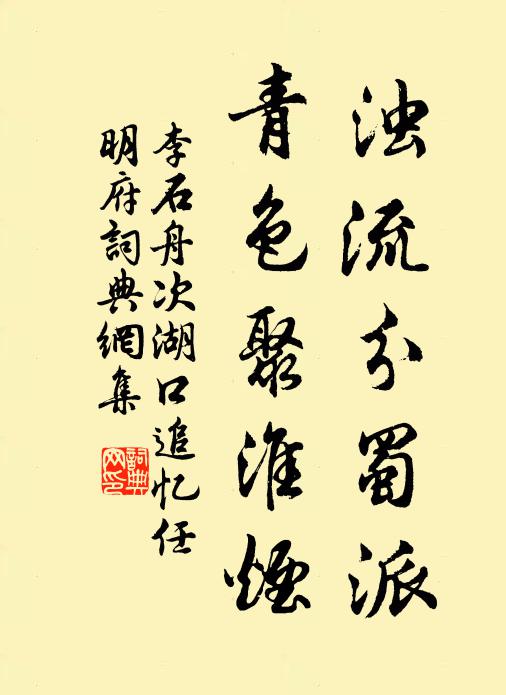 浊流分蜀派
青色聚淮煙
李石舟次湖口追忆任
明府詞典網集
詞典
网印